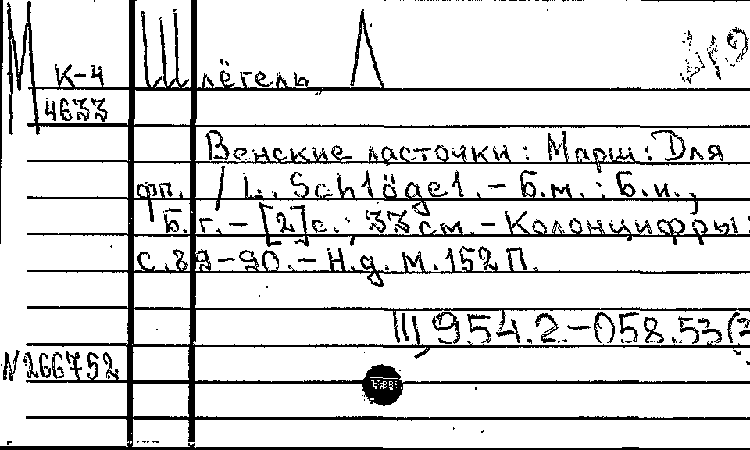 М К-4 Шлёгель Л
4633
Венские ласточки : Марш : Для
фп. / L. Schlägel. - Б.м. : Б.и.,
Б.г. - [2] с. ; 33 см. - Колонцифры:
с. 89-90. - Н.д. М.152 П.
III, 954.2.-058.53(3
N266752